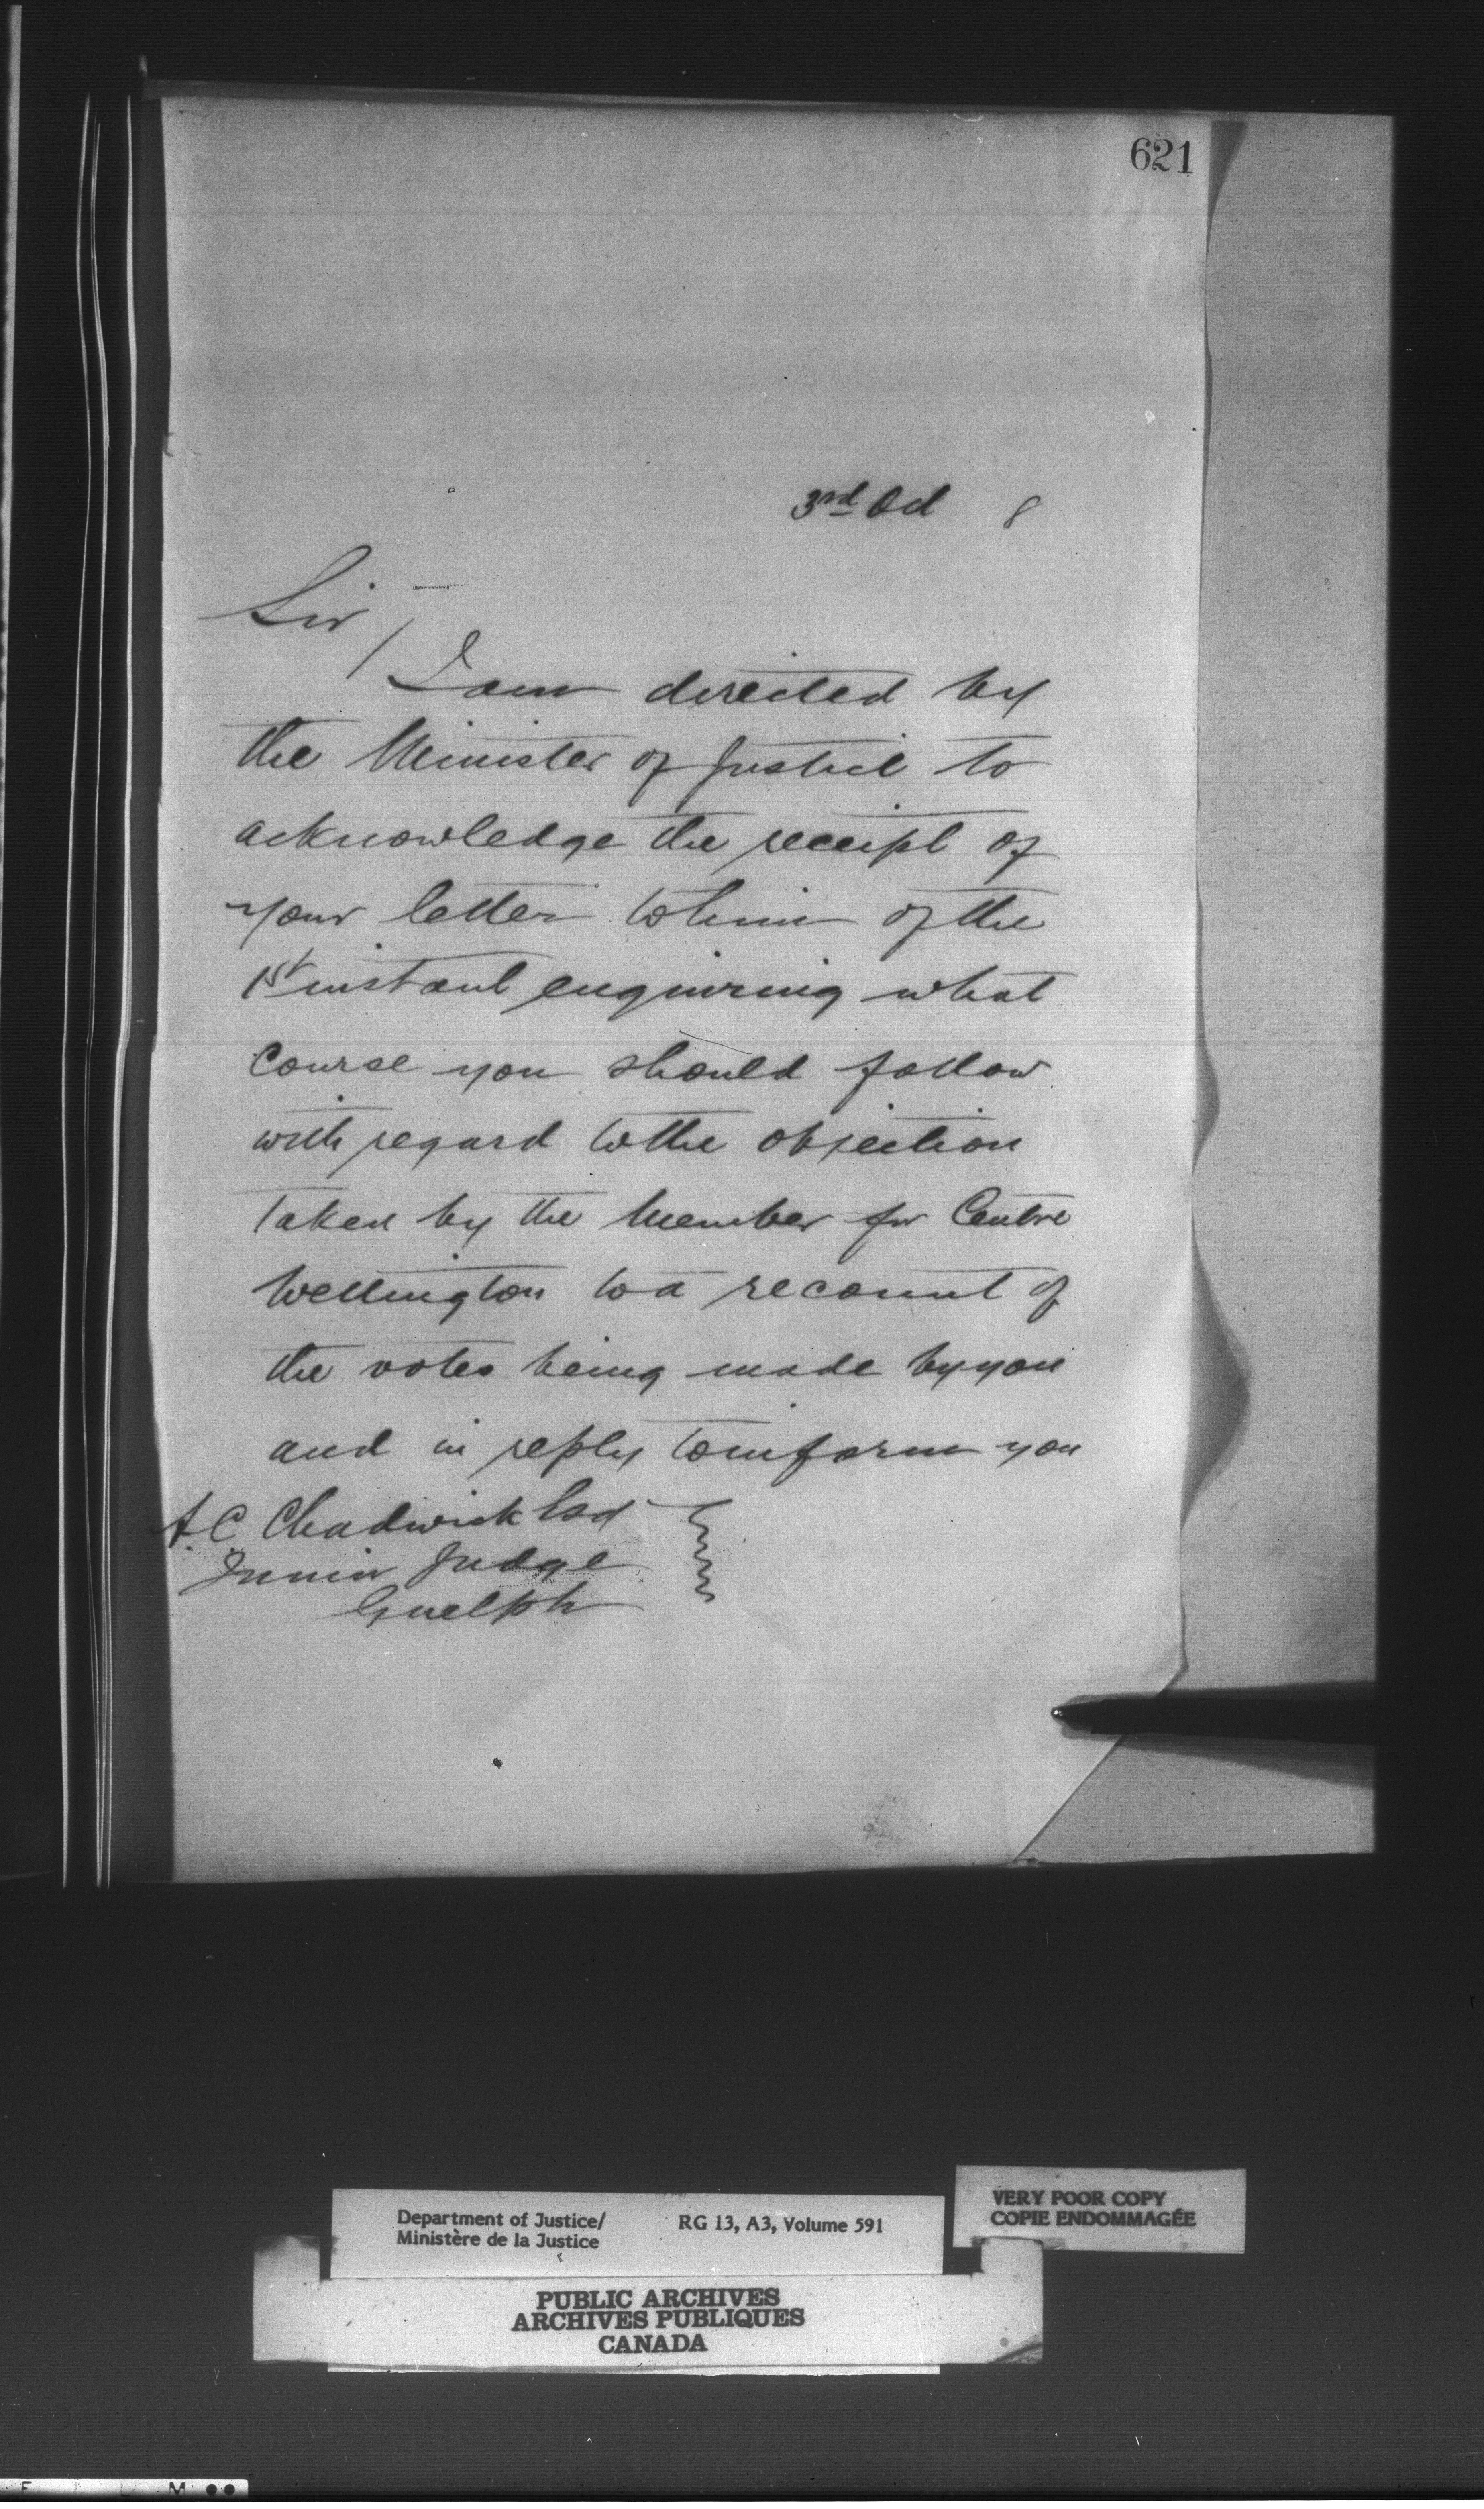 621
3rd Oct 8
Sir,
I am directed by
the Minister of Justice to
acknowledge the receipt of
your letter to him of the
1st instant enquiring what
course you should follow
with regard to the objection
taken by the Member for Centre
Wellington to a recount of
the votes being made by you
and in reply to inform you
A.C. Chadwick Esq
Junior Judge
Guelph
Department of Justice/ RG 13, A3, Volume 591
Ministère de la Justice
VERY POOR COPY
COPIE ENDOMMAGÉE
PUBLIC ARCHIVES
ARCHIVES PUBLIQUES
CANADA
F I L M